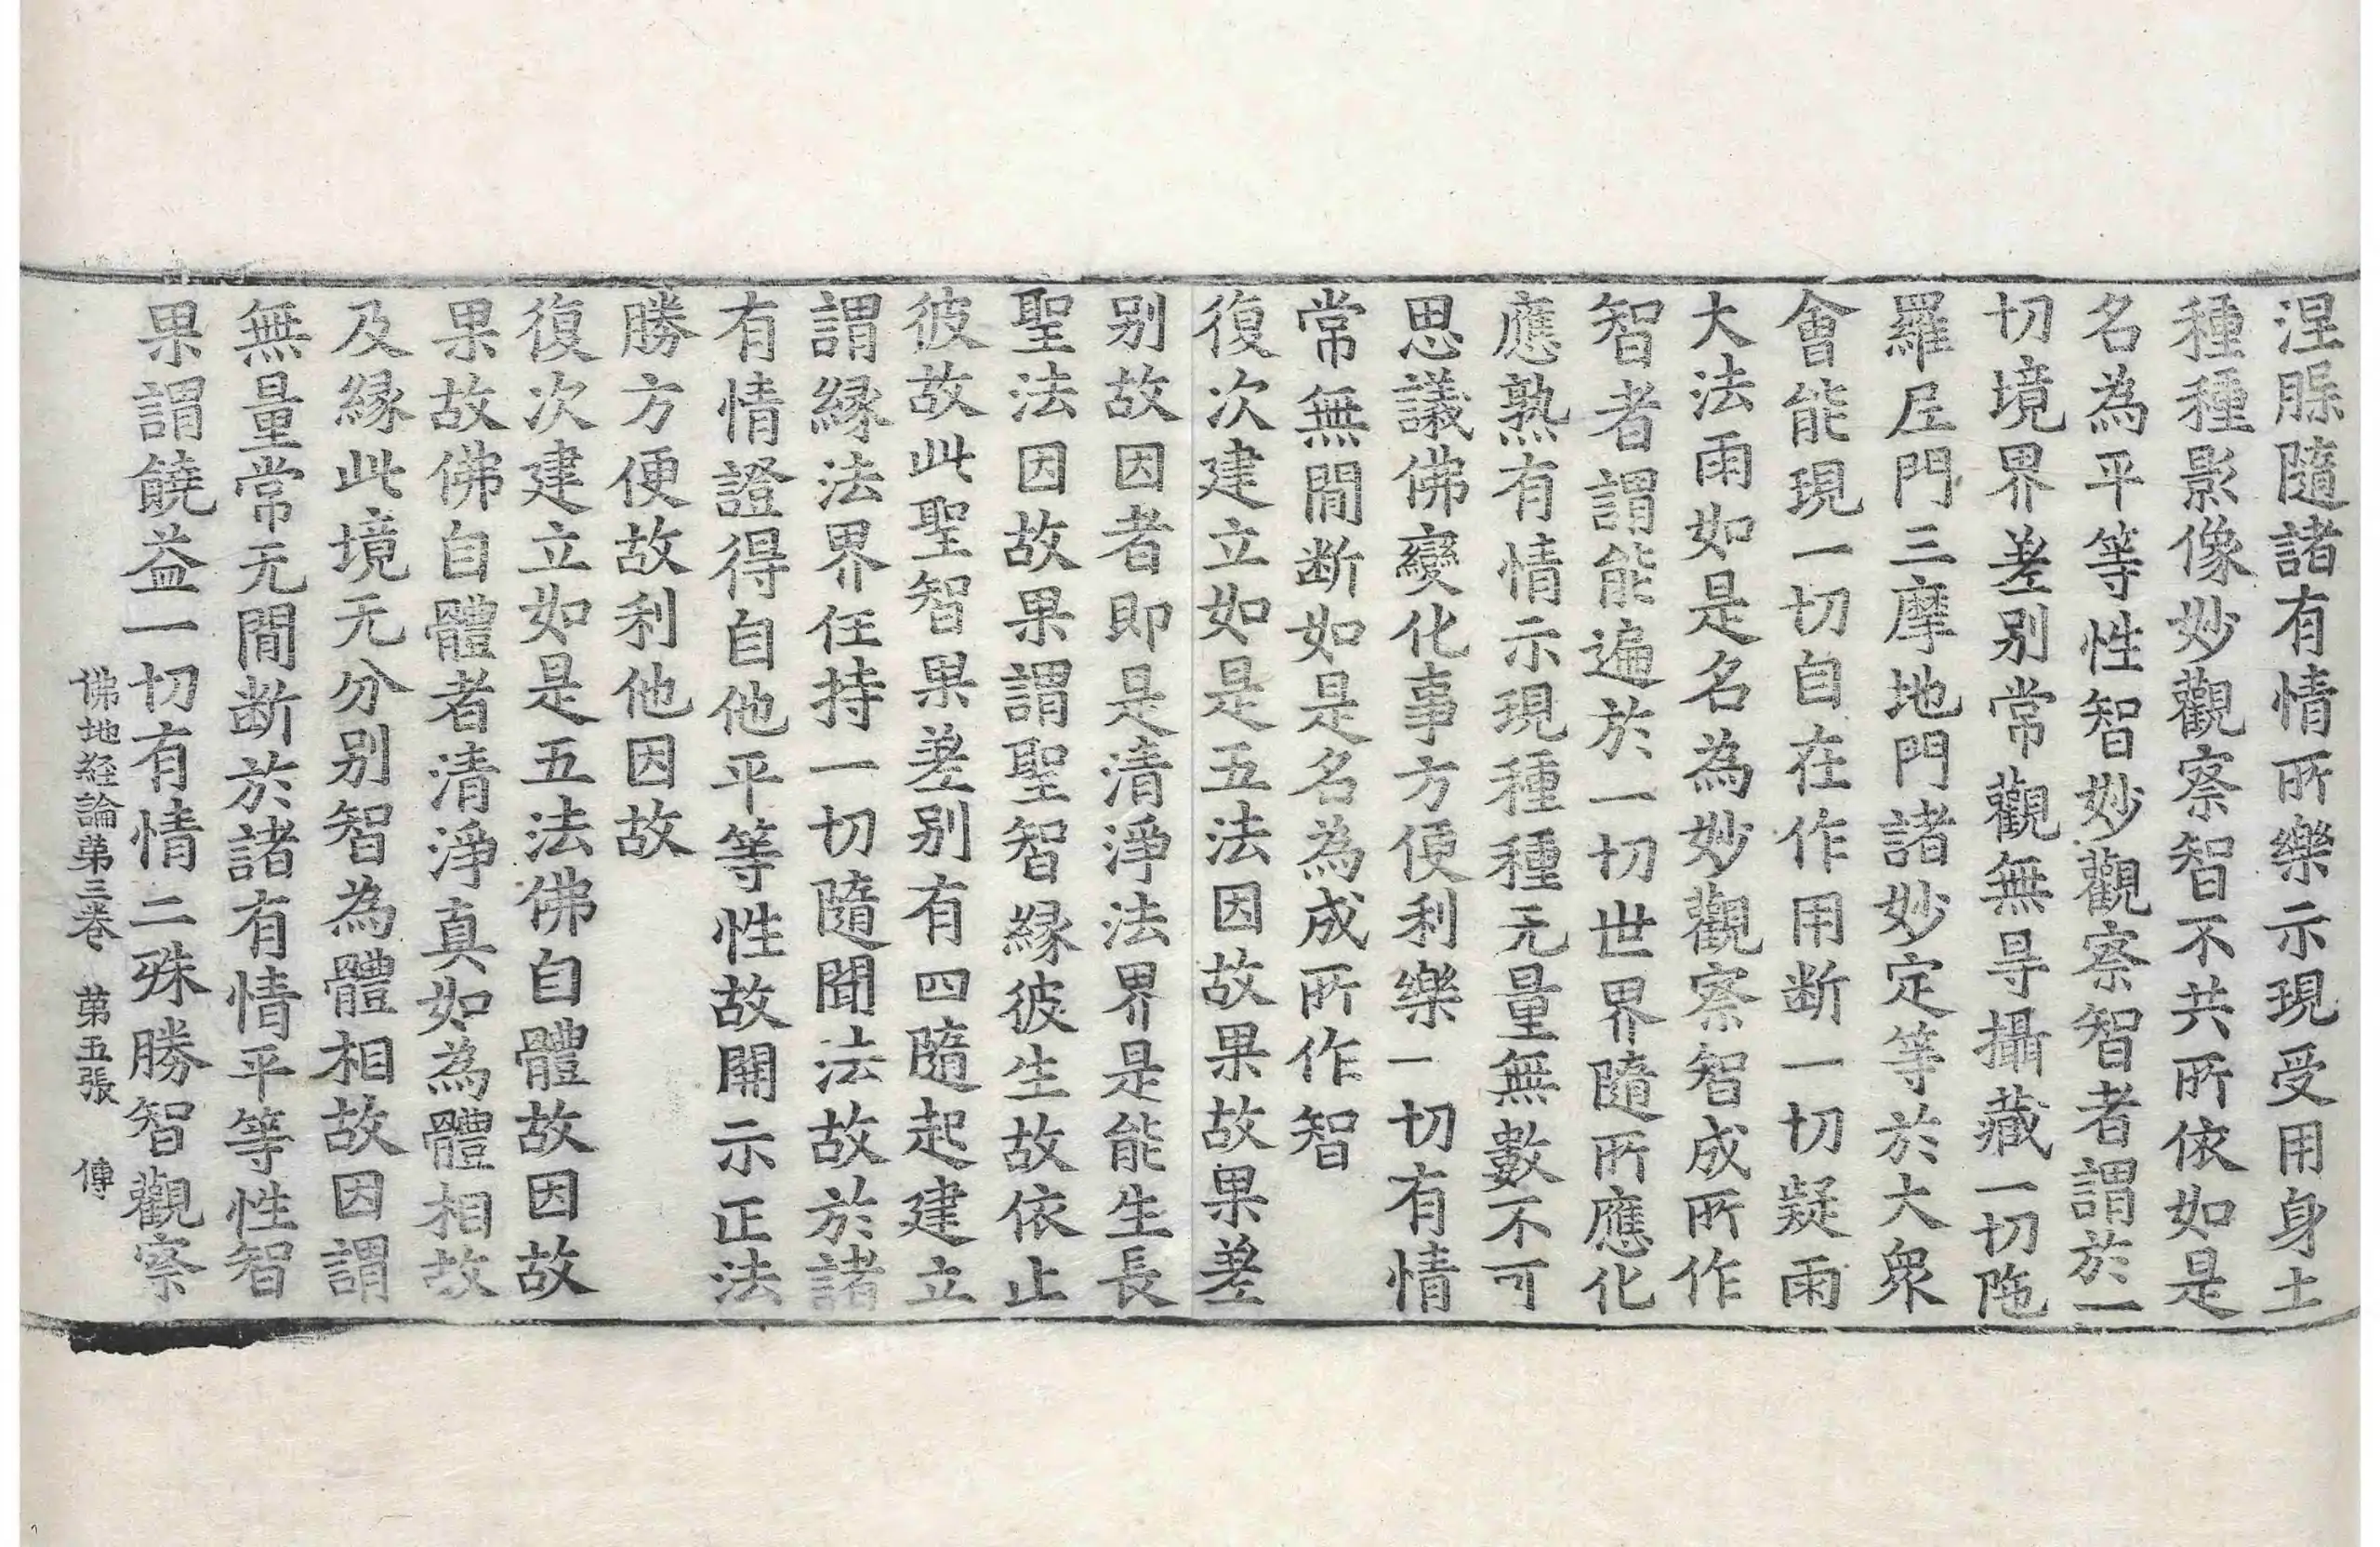 涅脲隨諸有情所樂示現受用身土
種種影像妙觀察智不共所依如是
名為平等性智妙觀察智者謂於一
切境界差別常觀無㝵攝藏一切陁
羅𡰱門三摩地門諸妙定等於大衆
會能現一切自在作用断一切疑雨
大法雨如是名為妙觀察智成所作
智者謂能遍於一切世界隨所應化
應熟有情示現種種无量無數不可
思議佛變化事方便利樂一切有情
常無間断如是名為成所作智
復次建立如是五法因故果故果差
別故因者即是清淨法界是能生長
聖法因故果謂聖智緣彼生故依止
彼故此聖智果差別有四隨起建立
謂緣法界任持一切隨聞法故於諸
有情證得自他平等性故開示正法
勝方便故利他因故
復次建立如是五法佛自體故因故
果故佛自體者清淨真如為體相故
及緣此境无分別智為體相故因謂
無量常无間断於諸有情平等性智
果謂饒益一切有情二殊勝智觀察
佛地経論第三卷 第五張 傳